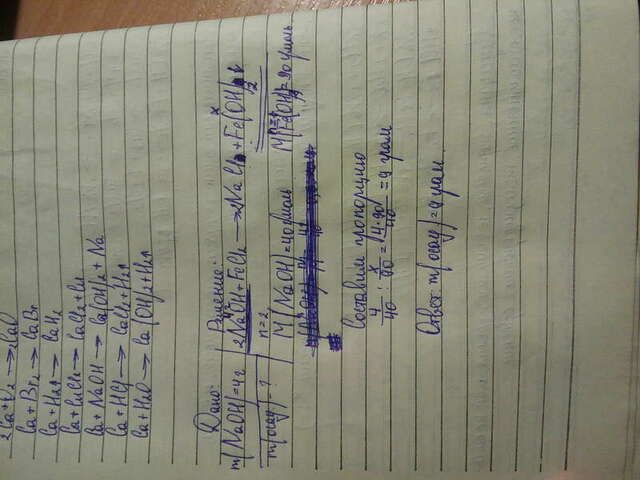 2Ca+O2 → 2CaO
Ca+Br2 → CaBr
Ca+H2↑ → CaH2
Ca+CuCl2 → CaCl2+Cu
Ca+NaOH → Ca(OH)2+Na
Ca+HCl → CaCl2+H2↑
Ca+H2O → Ca(OH)2+H2↑
Дано: Решение:
m(NaOH)=4г 2NaOH+FeCl2 → 2NaCl+Fe(OH)2↓
m(осау)=? n=2
M(NaOH)=40г/моль M(Fe(OH)2)=90г/моль
Составим пропорцию
4/40 : x/90 = 4·90/40 = 9 грам
Ответ m(осау)=9 грам.